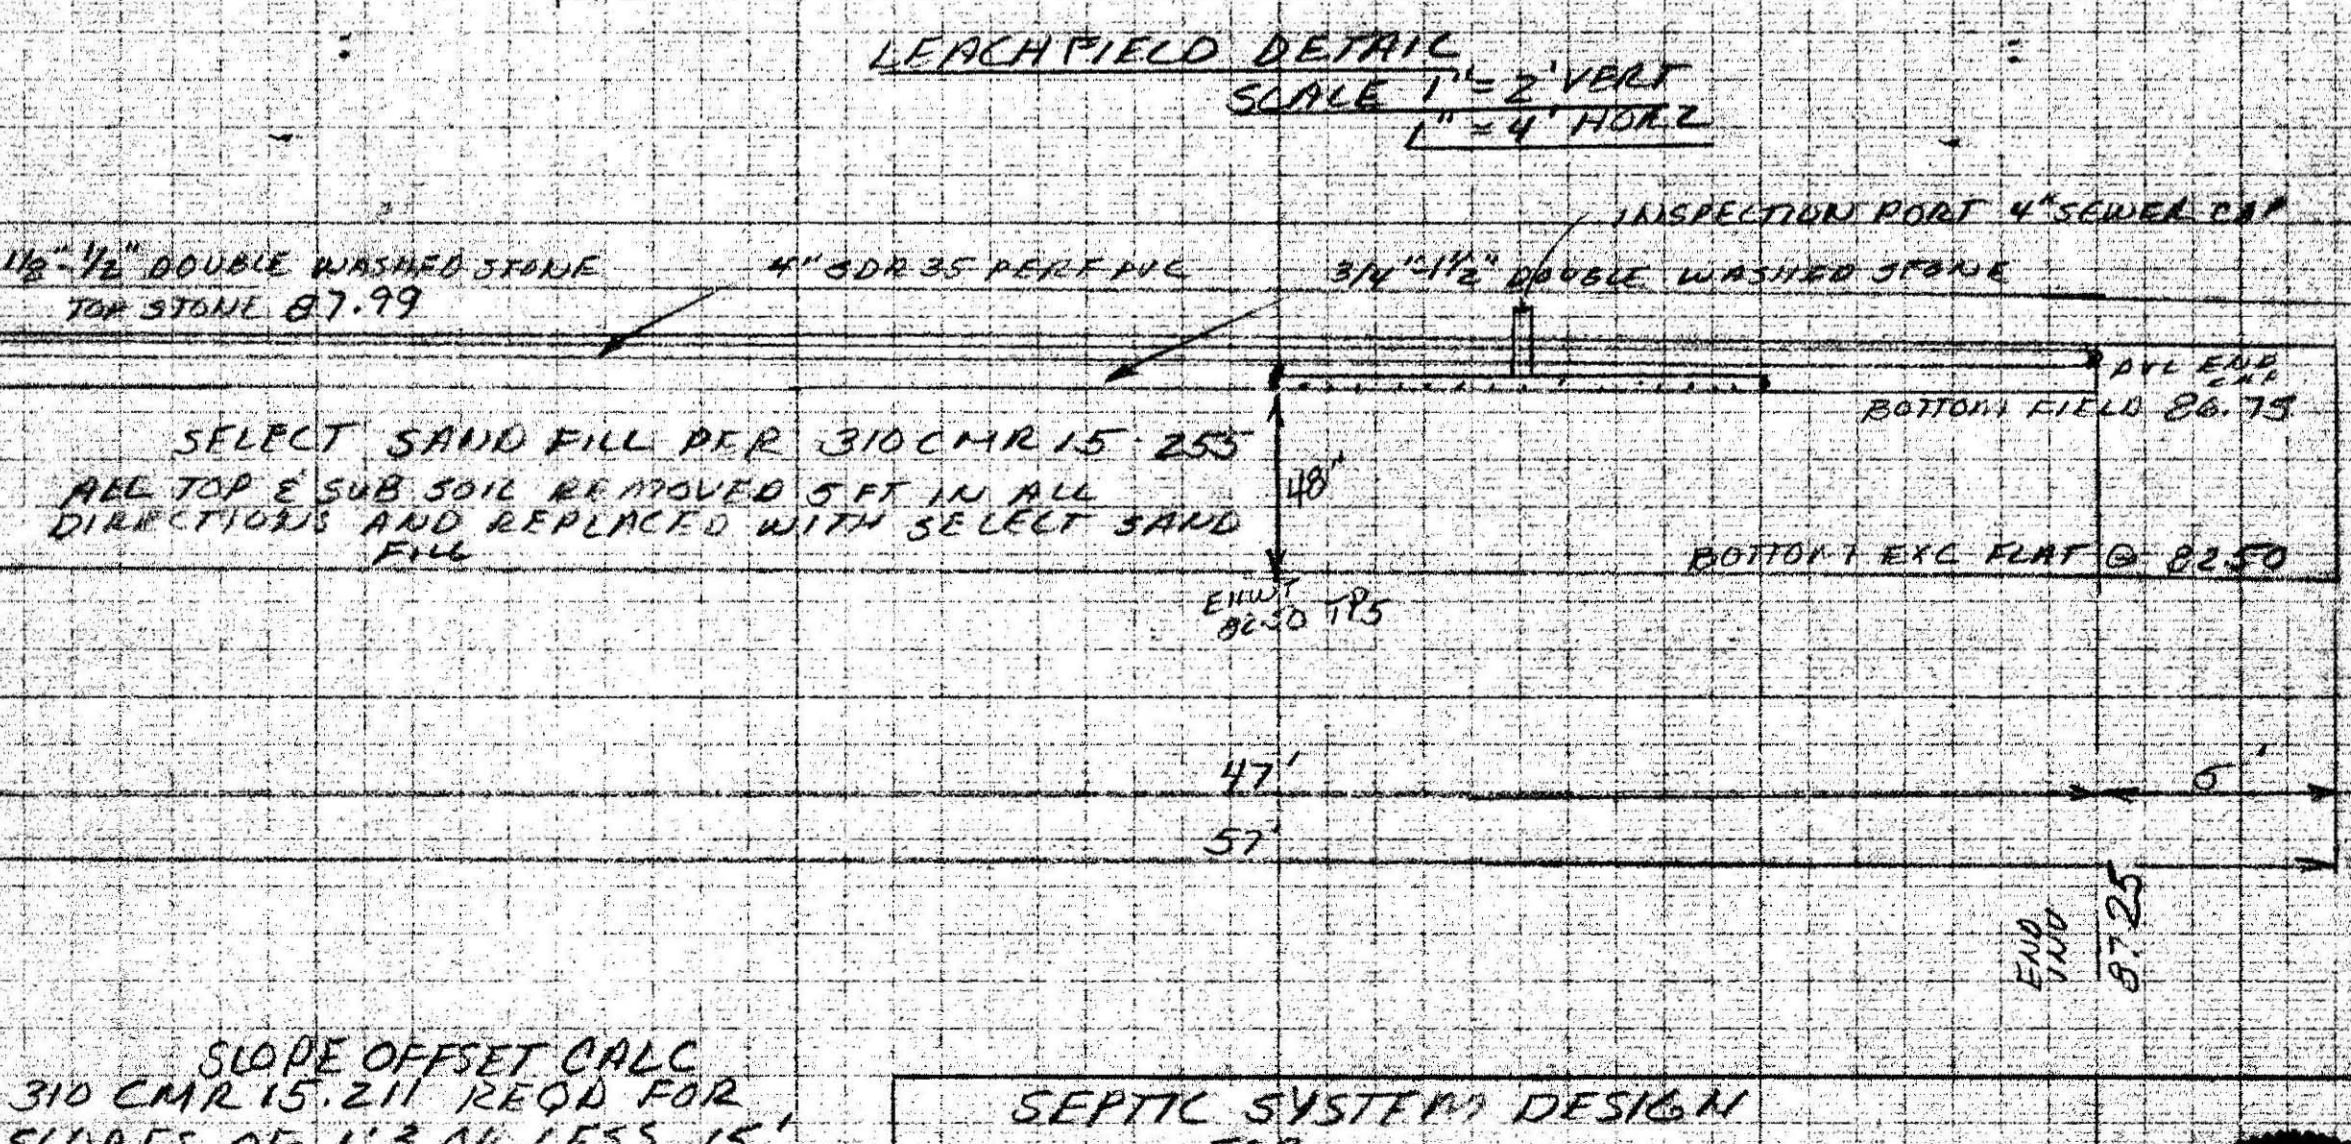 LEACHFIELD DETAIL
SCALE 1"=2' VERT
1"=4' HORZ
INSPECTION PORT 4" SEWER CAP
1/8"-1/2" DOUBLE WASHED STONE
TOP STONE 87.99
4" SDR 35 PERF PVC
3/4"-1 1/2" DOUBLE WASHED STONE
PVC END CAP
BOTTOM FIELD 86.75
SELECT SAND FILL PER 310 CMR 15.255
ALL TOP & SUB SOIL REMOVED 5 FT IN ALL
DIRECTIONS AND REPLACED WITH SELECT SAND
FILL
48"
BOTTOM EXC FLAT @ 82.50
EHWT
TP5
47'
5'
57'
END
INV
87.25
SLOPE OFFSET CALC
310 CMR 15.211 REQD FOR
SLOPES OF 1:3 OR LESS 15'
SEPTIC SYSTEM DESIGN
FOR